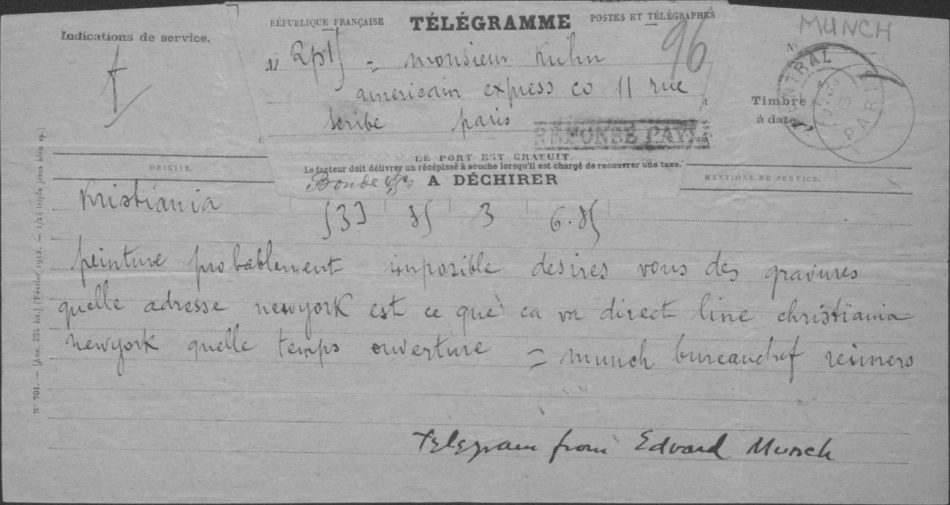 MUNCH
Indications de service.
RÉPUBLIQUE FRANÇAISE
TÉLÉGRAMME
POSTES ET TÉLÉGRAPHES
96
= monsieur Kuhn
americain express co 11 rue
scribe paris
RÉPONSE PAYÉE
CENTRAL
PARIS
Timbre
à date
LE PORT EST GRATUIT.
Le facteur doit délivrer un récépissé à souche lorsqu'il est chargé de recouvrer une taxe.
A DÉCHIRER
ORIGINE.
MENTIONS DE SERVICE.
Kristiania
533 35 3 6.35
peinture probablement impozible desires vous des gravures
quelle adresse newyork est ce que ca va direct line christiania
newyork quelle temps ouverture = munch bureauchef reimers
Telegram from Edvard Munch
N° 701.